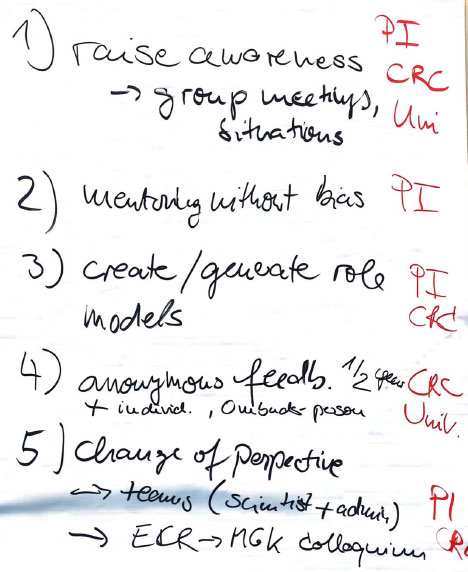 1) raise awareness PI
CRC
→ group meetings, Uni
situations
2) mentoring without bias PI
3) create/generate role PI
models CRC
4) anonymous feedb. 1/2 year CRC
+ individ., Ombuds-person Univ.
5) Change of Perspective
→ teams (scientist + admin) PI
→ ECR → MGK colloquium CR